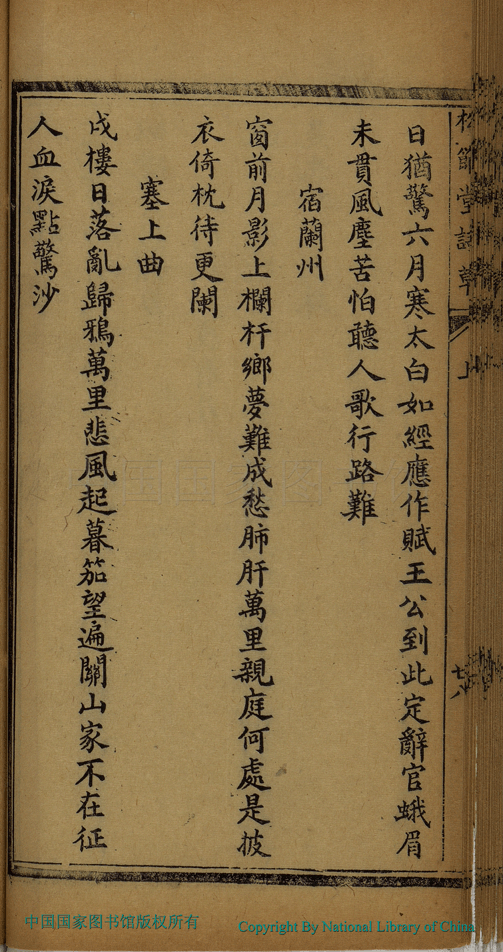 日猶驚六月寒太白如經應作賦王公到此定辭官蛾眉
未貫風塵苦怕聽人歌行路難
宿蘭州
窗前月影上欄杆鄉夢難成愁肺肝萬里親庭何處是披
衣倚枕待更闌
塞上曲
戍樓日落亂歸鴉萬里悲風起暮笳望遍關山家不在征
人血淚點驚沙
中国国家图书馆版权所有
Copyright By National Library of China